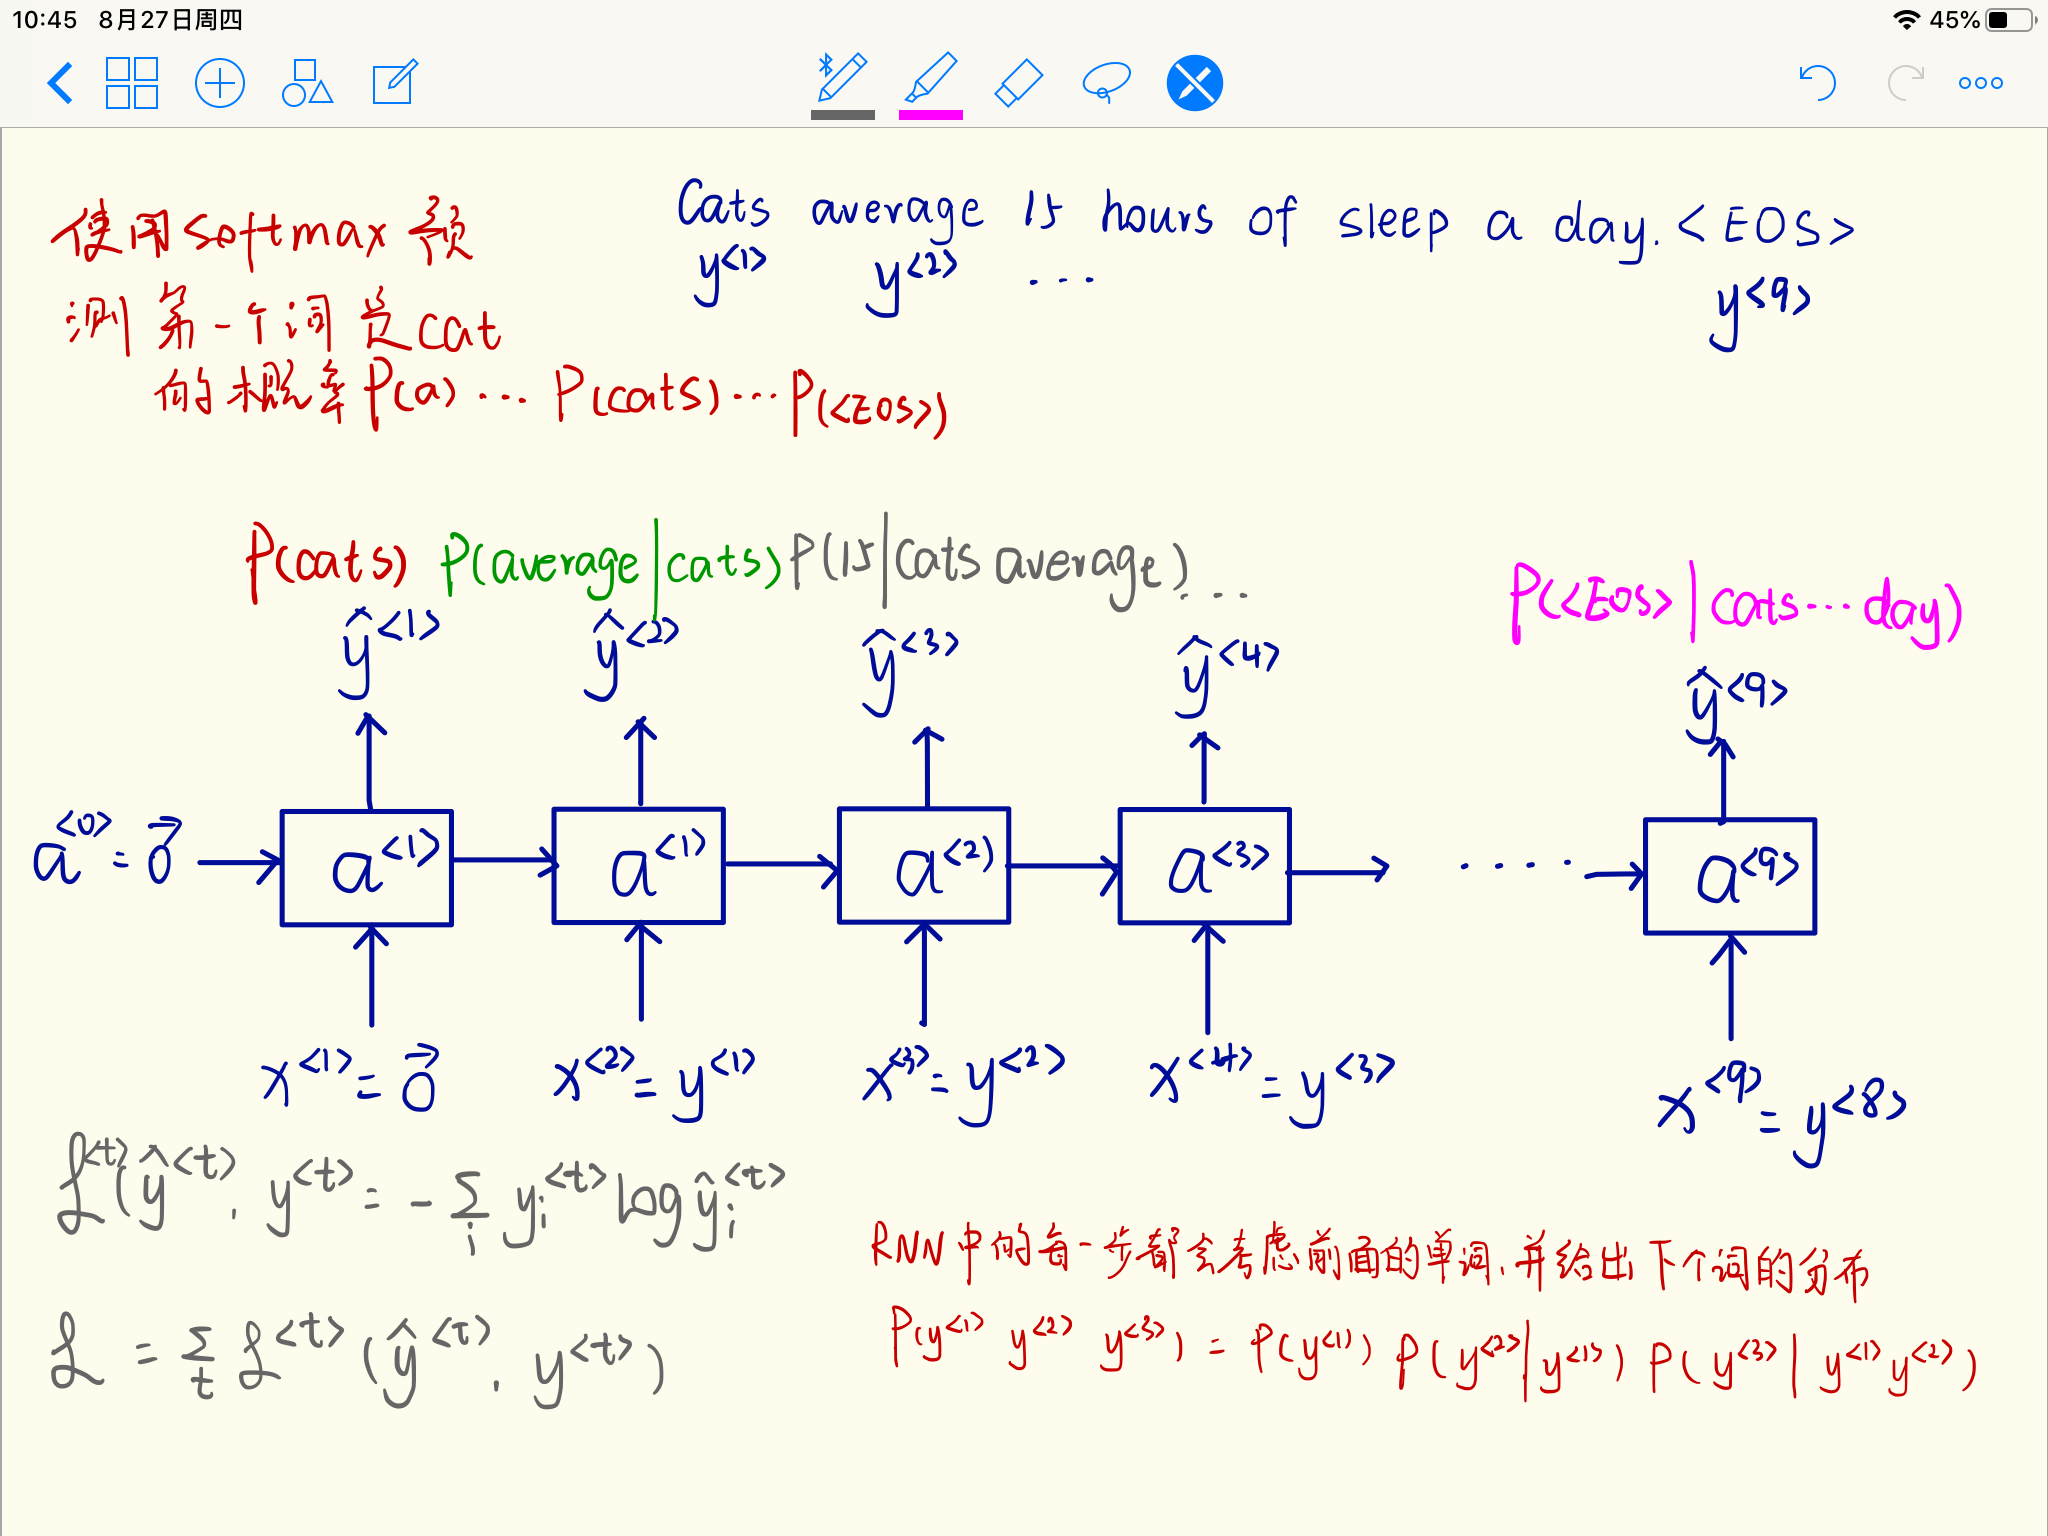 10:45 8月27日周四 45%
Cats average 15 hours of sleep a day. <EOS>
y<1> y<2> ... y<9>
使用softmax 预
测 第一个词是cat
的概率P(a) ... P(cats) ... P(<EOS>)
P(cats) P(average|cats) P(15|cats average) ... P(<EOS>|cats...day)
ŷ<1> ŷ<2> ŷ<3> ŷ<4> ŷ<9>
a<0> = 0⃗ a<1> a<1> a<2> a<3> .... a<9>
x<1> = 0⃗ x<2> = y<1> x<3> = y<2> x<4> = y<3> x<9> = y<8>
ℒ<t>(ŷ<t>, y<t> = - Σi yi<t> log ŷi<t>
ℒ = Σt ℒ<t> (ŷ<t>, y<t>)
RNN中的每一步都会考虑前面的单词,并给出下个词的分布
P(y<1> y<2> y<3>) = P(y<1>) P(y<2>|y<1>) P(y<3>|y<1>y<2>)